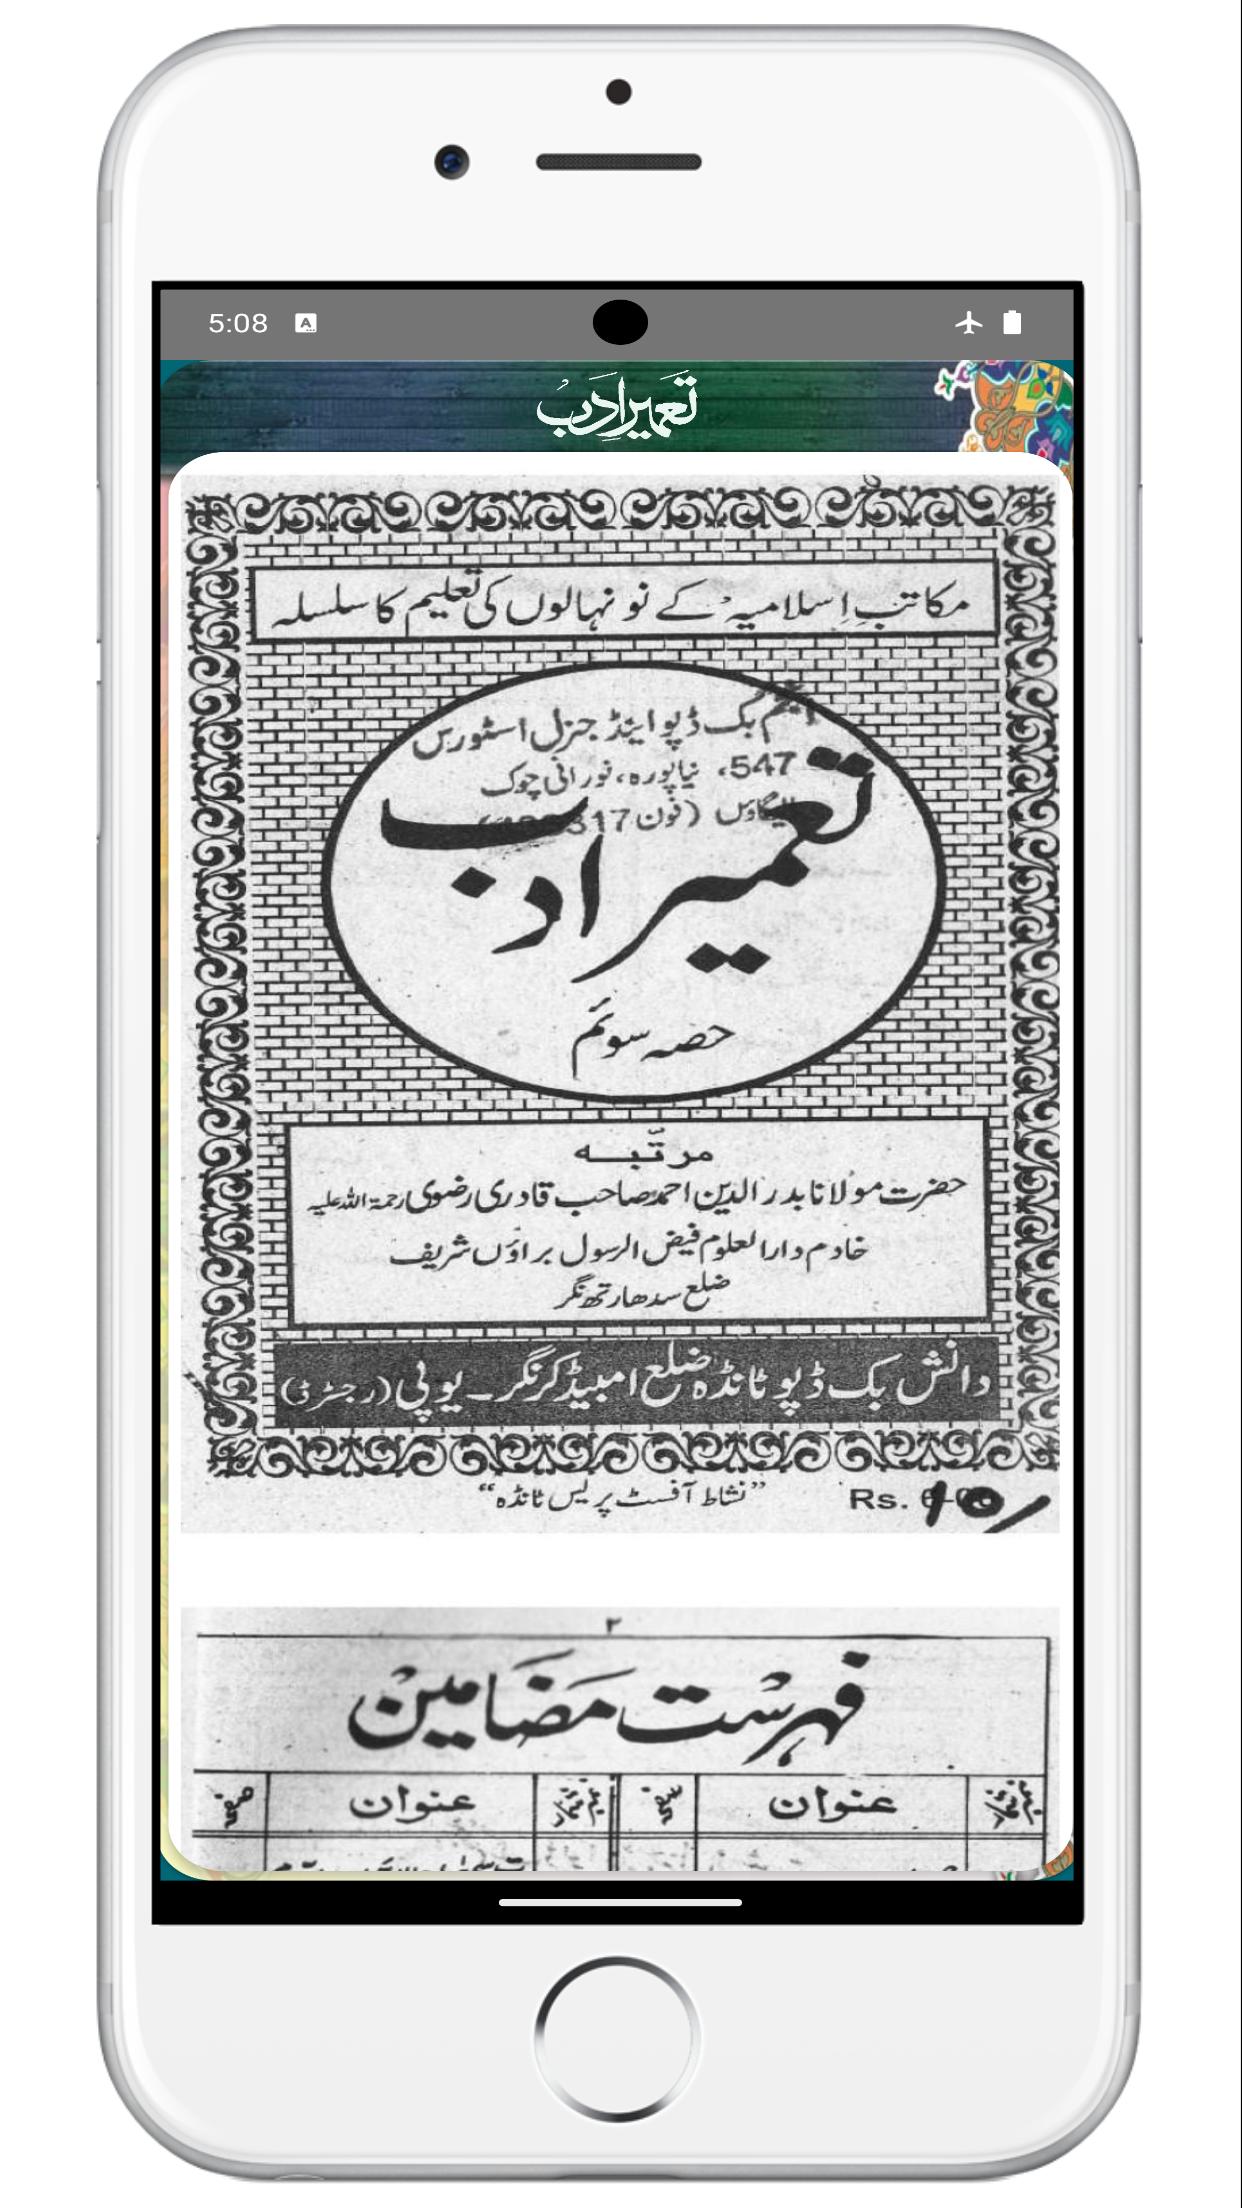 5:08
تعمیر ادب
مکاتبِ اِسلامیہ کے نونہالوں کی تعلیم کا سلسلہ
بک ڈپو اینڈ جنرل اسٹورس
547، نیاپورہ، نورانی چوک
(فون
تعمیر ادب
حصہ سوئم
مرتّبہ
حضرت مولانا بدر الدین احمد صاحب قادری رضوی رحمۃ اللہ علیہ
خادم دارالعلوم فیض الرسول براؤں شریف
ضلع سدھارتھ نگر
دانش بک ڈپو ٹانڈہ ضلع امبیڈکر نگر۔ یوپی (رجسٹرڈ)
”نشاط آفسٹ پریس ٹانڈہ“
Rs. 10/
۲
فہرست مضامین
نمبر شمار عنوان صفحہ نمبر شمار عنوان صفحہ